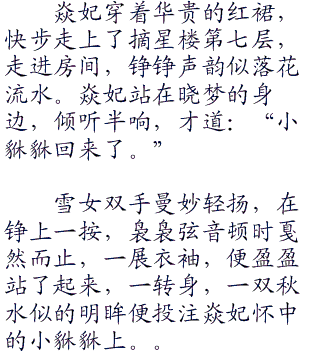 焱妃穿着华贵的红裙，
快步走上了摘星楼第七层，
走进房间，铮铮声韵似落花
流水。焱妃站在晓梦的身
边，倾听半响，才道：“小
貅貅回来了。”
雪女双手曼妙轻扬，在
铮上一按，袅袅弦音顿时戛
然而止，一展衣袖，便盈盈
站了起来，一转身，一双秋
水似的明眸便投注焱妃怀中
的小貅貅上。。